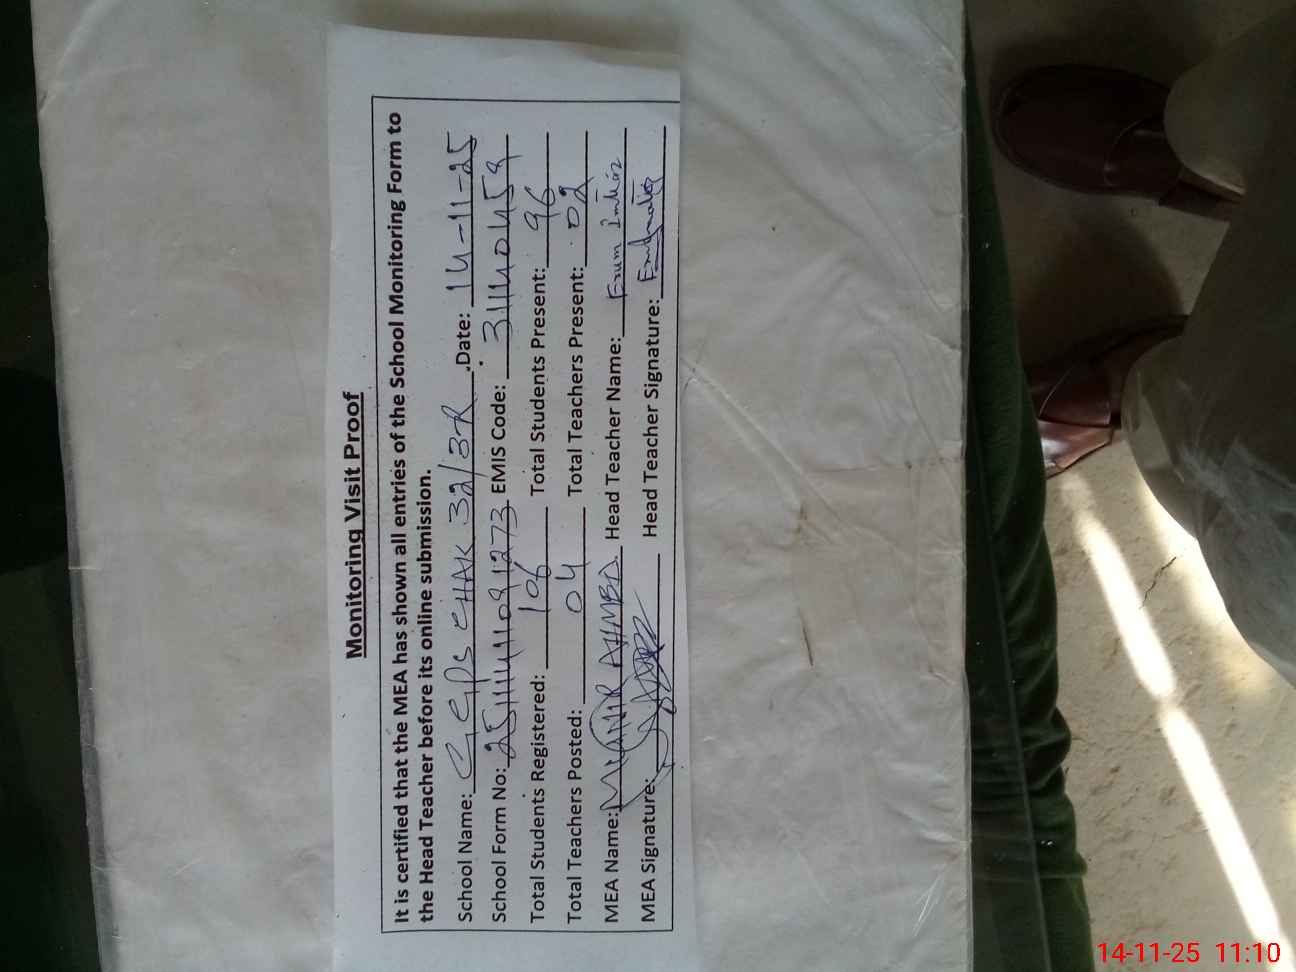 Monitoring Visit Proof
It is certified that the MEA has shown all entries of the School Monitoring Form to
the Head Teacher before its online submission.
School Name: GGPS CHAK 32/3R .Date: 14-11-25
School Form No: EMIS Code: 31140459
Total Students Registered: 106 Total Students Present: 96
Total Teachers Posted: 04 Total Teachers Present: 02
MEA Name: AHMED Head Teacher Name: Erum Imtiaz
MEA Signature: Head Teacher Signature:
14-11-25 11:10